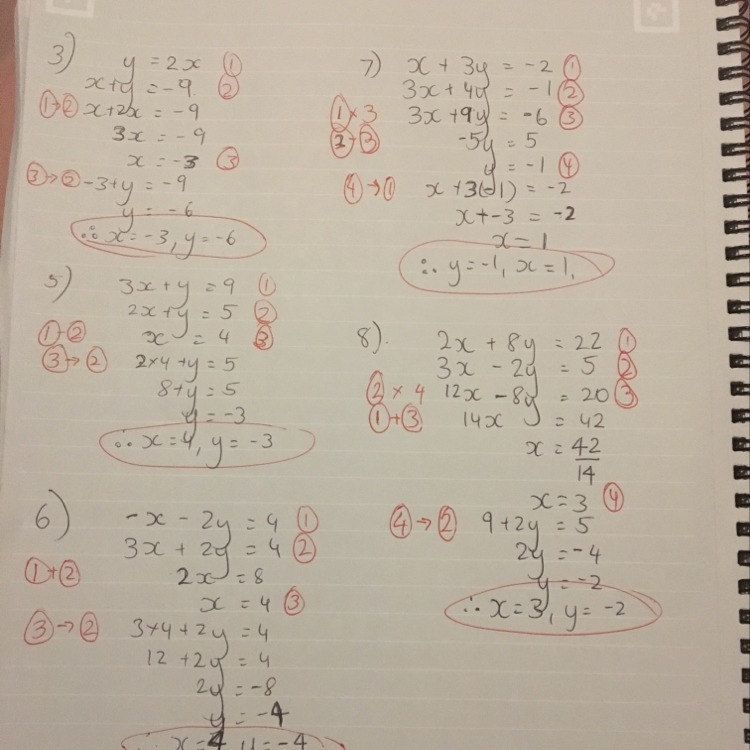 3) y = 2x ①
x+y = -9 ②
①→② x+2x = -9
3x = -9
x = -3 ③
③→② -3+y = -9
y = -6
∴ x = -3, y = -6
5) 3x + y = 9 ①
2x + y = 5 ②
①-② x = 4 ③
③→② 2×4 + y = 5
8 + y = 5
y = -3
∴ x = 4, y = -3
6) -x - 2y = 4 ①
3x + 2y = 4 ②
①+② 2x = 8
x = 4 ③
③→② 3×4 + 2y = 4
12 + 2y = 4
2y = -8
y = -4
∴ x = 4 y = -4
7) x + 3y = -2 ①
3x + 4y = -1 ②
①×3 3x + 9y = -6 ③
②-③ -5y = 5
y = -1 ④
④→① x + 3(-1) = -2
x + -3 = -2
x = 1
∴ y = -1, x = 1,
8). 2x + 8y = 22 ①
3x - 2y = 5 ②
②×4 12x - 8y = 20 ③
①+③ 14x = 42
x = 42/14
x = 3 ④
④→② 9 + 2y = 5
2y = -4
y = -2
∴ x = 3, y = -2